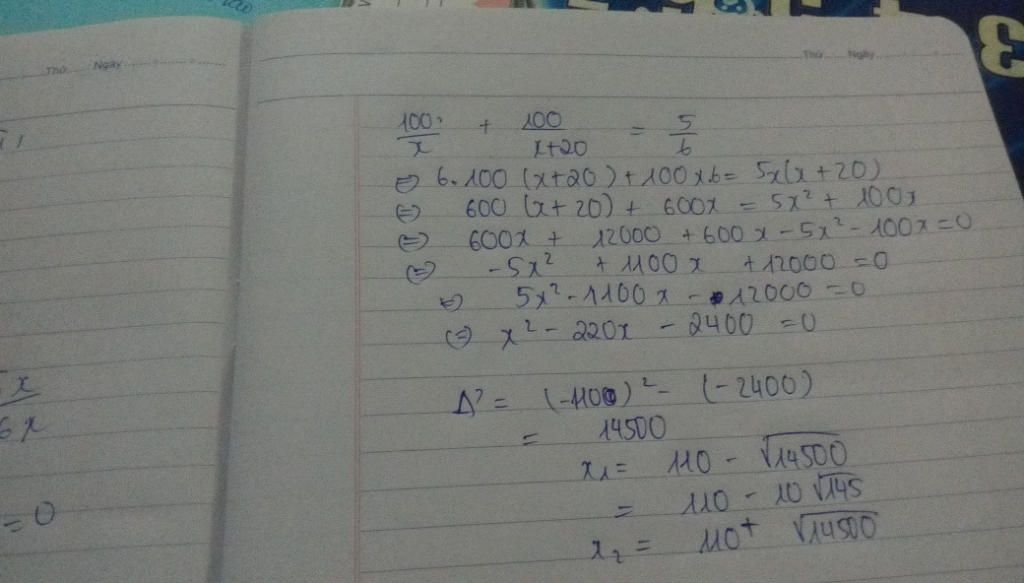 Thứ Ngày
Thứ Ngày
100/x + 100/(x+20) = 5/6
⇔ 6.100 (x+20) + 100x6 = 5x(x+20)
⇔ 600 (x+20) + 600x = 5x² + 100x
⇔ 600x + 12000 + 600x - 5x² - 100x = 0
⇔ -5x² + 1100x + 12000 = 0
⇔ 5x² - 1100x - 12000 = 0
⇔ x² - 220x - 2400 = 0
Δ' = (-110)² - (-2400)
= 14500
x₁ = 110 - √14500
= 110 - 10√145
x₂ = 110 + √14500
x
6x
= 0